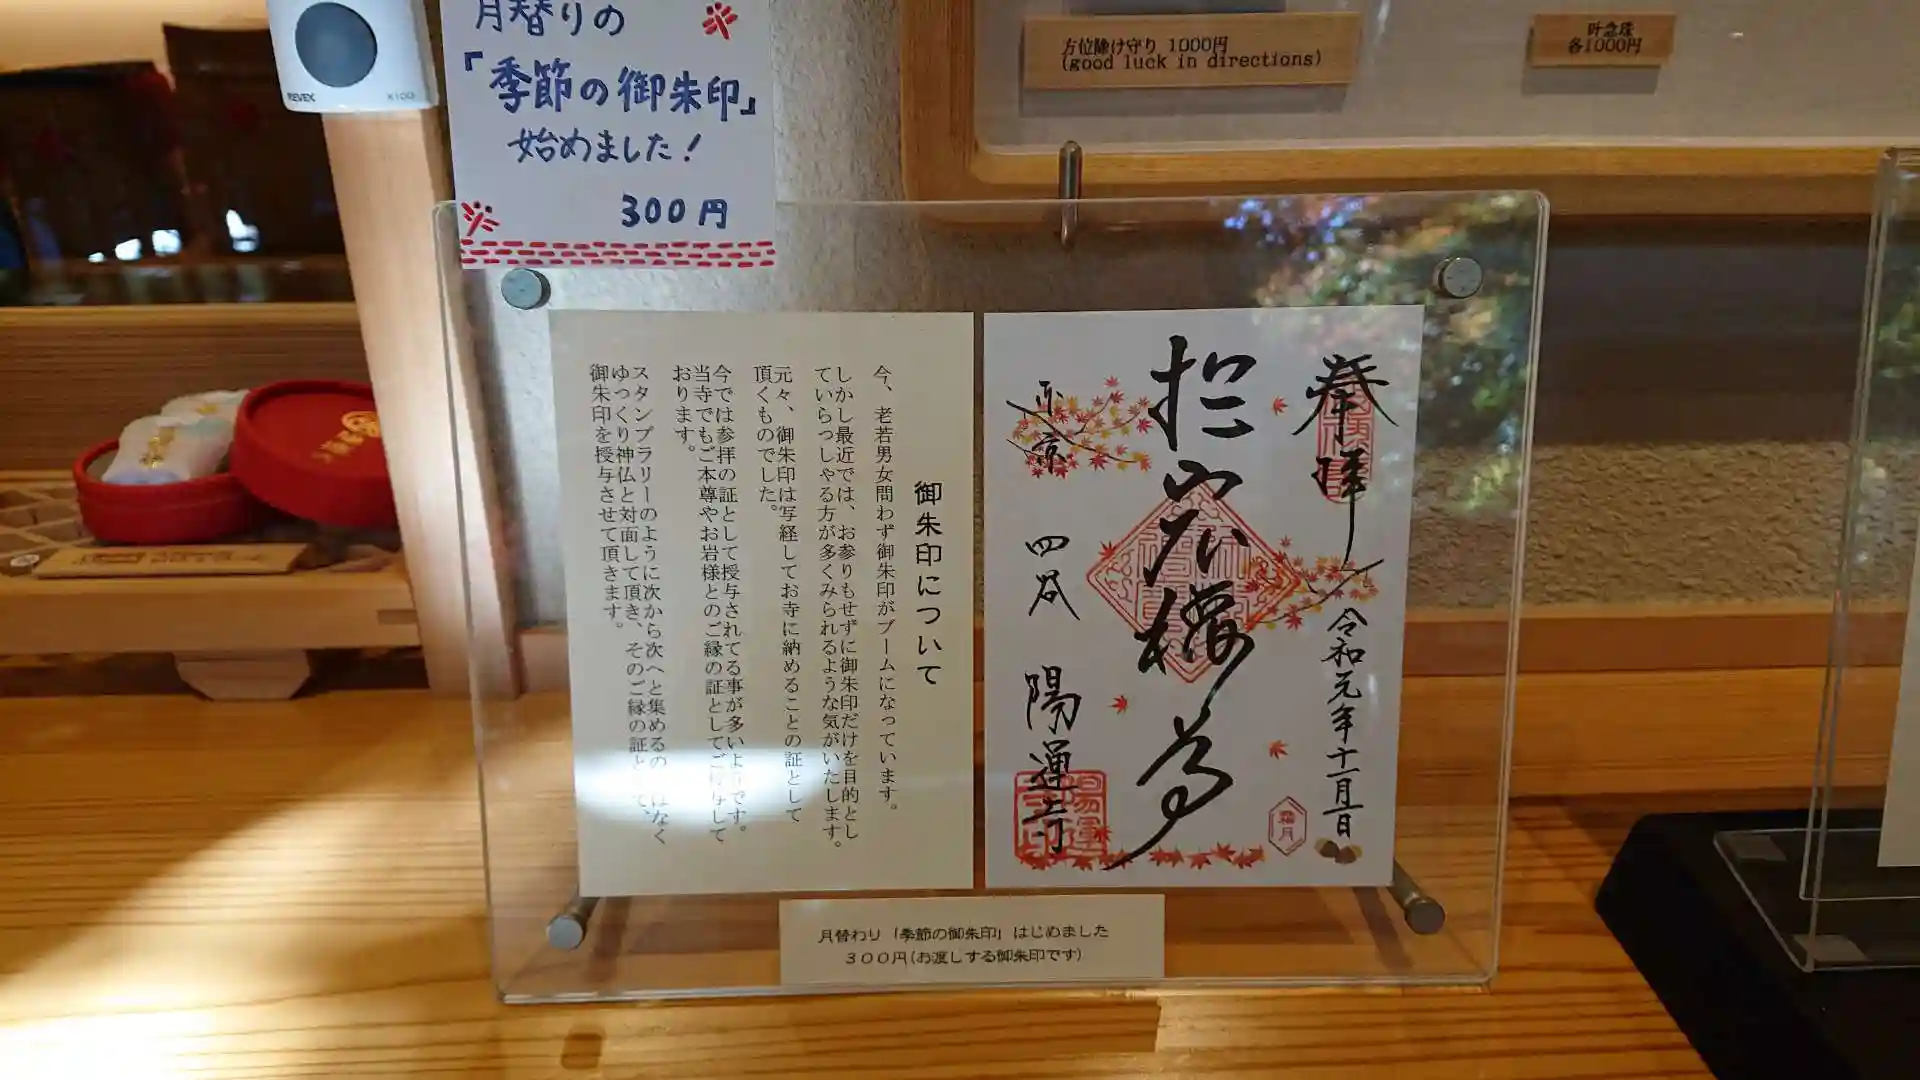 月替りの
「季節の御朱印」
始めました！
300円
方位除け守り 1000円
(good luck in directions)
叶念珠
各1000円
REVEX
X100
奉拝
令和元年十一月一日
東京 四谷 陽運寺
霜月
御朱印について
今、老若男女問わず御朱印がブームになっています。
しかし最近では、お参りもせずに御朱印だけを目的とし
ていらっしゃる方が多くみられるような気がいたします。
元々、御朱印は写経してお寺に納めることの証として
頂くものでした。
今では参拝の証として授与されてる事が多いようです。
当寺でもご本尊やお岩様とのご縁の証としてご授与して
おります。
スタンプラリーのように次から次へと集めるのではなく
ゆっくり神仏と対面して頂き、そのご縁の証として、
御朱印を授与させて頂きます。
月替わり「季節の御朱印」はじめました
300円(お渡しする御朱印です)